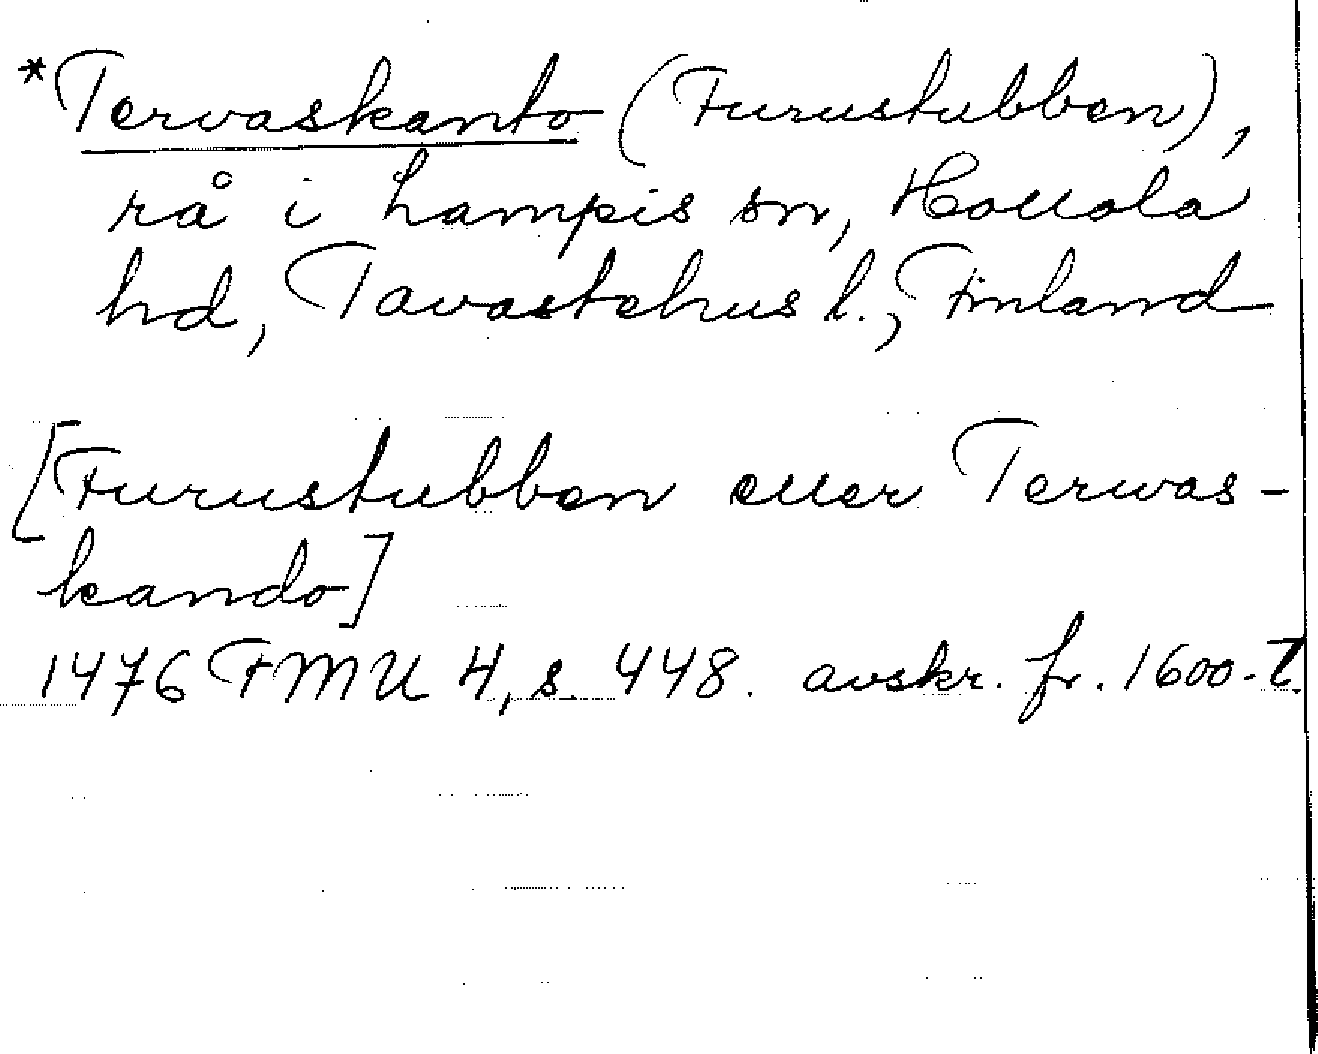 *Tervaskanto (Furustubben),
rå i Lampis sn, Hollola
hd, Tavastehus l., Finland
[Furustubben eller Terwas-
kando]
1476 FMU 4, s. 448. avskr. fr. 1600-t.